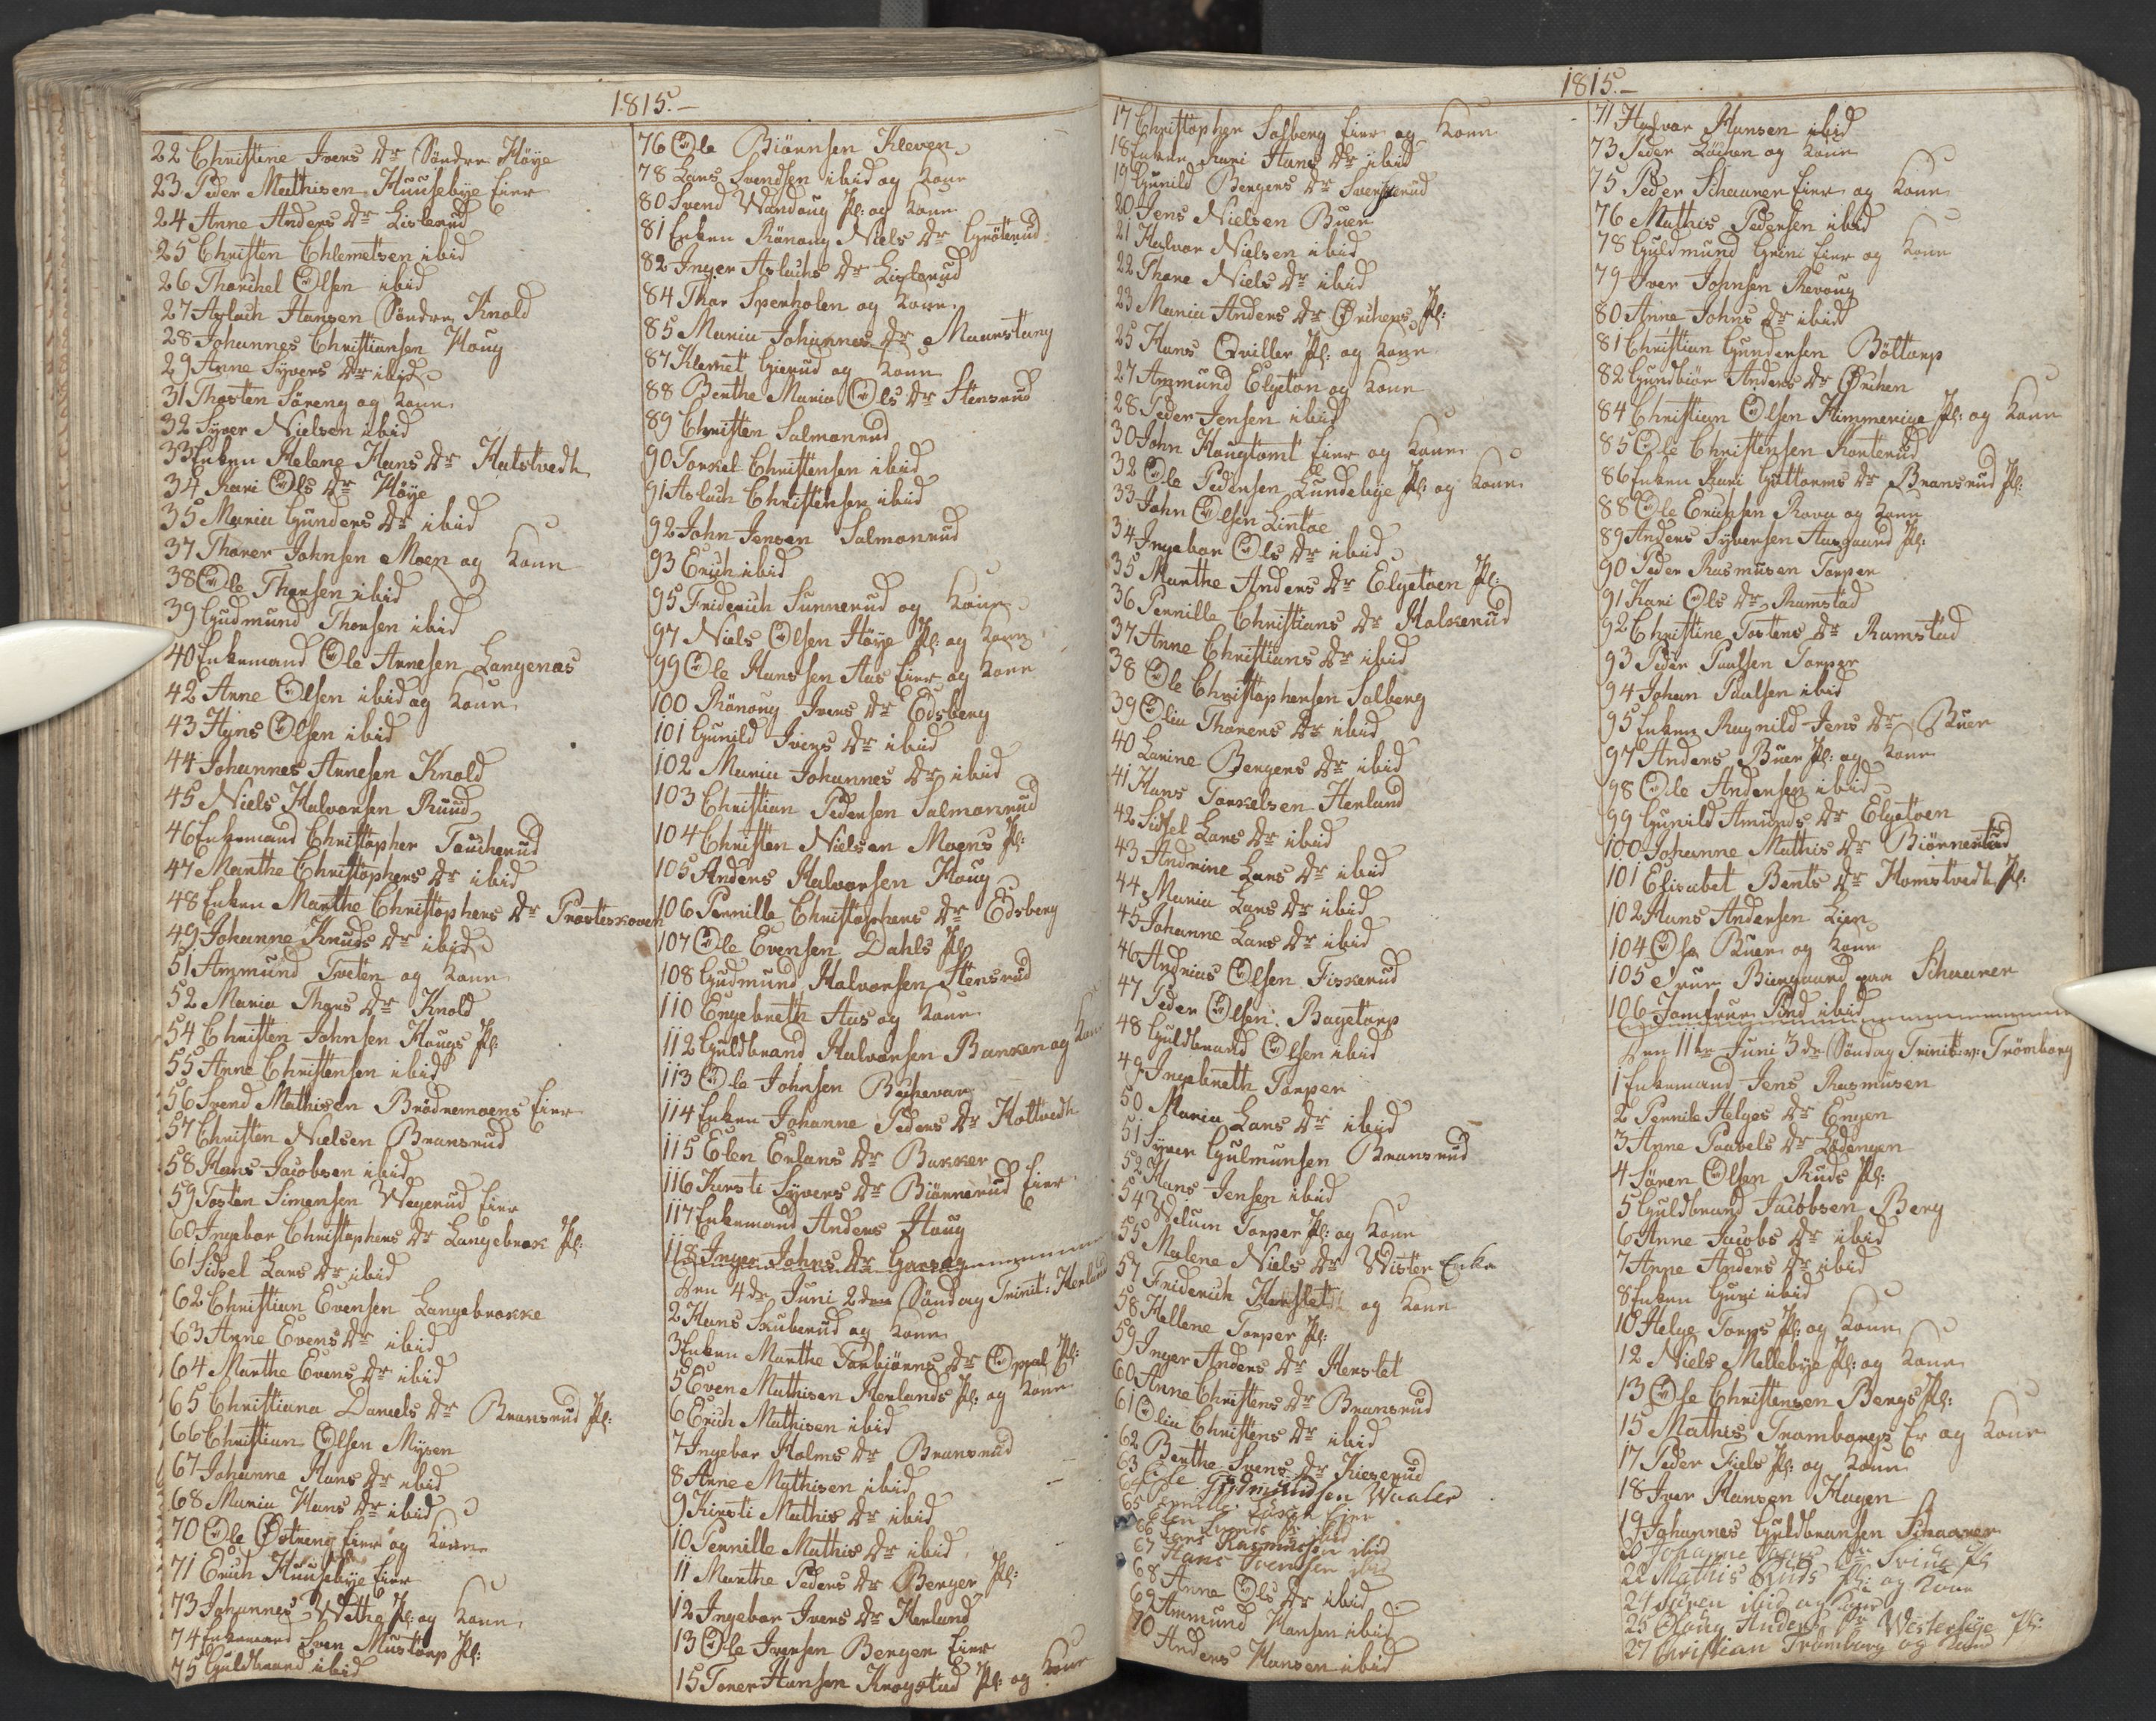 1815.-
22 Christine Ivers Dr Söndre Höye
23 Peder Mathisen Huusebye Eier
24 Anne Anders Dr Listerud
25 Christen Chlemetsen ibid
26 Thorchel Olsen ibid
27 Aslach Hansen Söndre Knold
28 Johannes Christiansen Houg
29 Anne Syvers Dr ibid
31 Thosten Söreng og Kone
32 Syver Nielsen ibid
33 Enken Helene Hans Dr Hatstvedt
34 Kari Ols Dr Höye
35 Maria Gunders Dr ibid
37 Thorer Johnsen Moen og Kone
38 Ole Thorsen ibid
39 Gudmund Thorsen ibid
40 Enkemand Ole Arnesen Langenæs
42 Arne Olsen ibid og Kone
43 Hans Olsen ibid
44 Johannes Arnesen Knold
45 Niels Halvorsen Ruud
46 Enkemand Christopher Toucherud
47 Marthe Christophers Dr ibid
48 Enken Marthe Christophers Dr Prosteskoven
49 Johanne Knuds Dr ibid
51 Ammund Tveten og Kone
52 Maria Thors Dr Knold
54 Christen Johnsen Hougs Pl:
55 Anne Christensen ibid
56 Svend Mathisen Brödremoens Eier
57 Christen Nielsen Bransrud
58 Hans Jacobsen ibid
59 Tosten Simensen Wegerud Eier
60 Ingebor Christophers Dr Langebrek Pl:
61 Sidsel Lars Dr ibid
62 Christian Evensen Langebrekke
63 Anne Evens Dr ibid
64 Marthe Evens Dr ibid
65 Christiana Daniels Dr Bransrud Pl:
66 Christian Olsen Mysen
67 Johanne Hans Dr ibid
68 Maria Hans Dr ibid
70 Ole Östreng Eier og Kone
71 Erich Huusebye Eier
73 Johannes Wethe Pl: og Kone
74 Enkemand Sven Mustorp Pl:
75 Guldbrand ibid
76 Ole Biörnsen Kleven
78 Lars Svendsen ibid og Kone
80 Svend Wandoug Pl: og Kone
81 Enken Rönoug Niels Dr Gröterud
82 Inger Aslachs Dr Listerud
84 Thor Sperholen og Kone
85 Maria Johannes Dr Maurstang
87 Klemet Gierud og Kone
88 Berthe Maria Ols Dr Stensrud
89 Christen Salmonrud
90 Torkel Christensen ibid
91 Aslach Christensen ibid
92 John Jensen Salmonrud
93 Erich ibid
95 Friderich Sunnerud og Kone
97 Niels Olsen Höye Pl: og Kone
99 Ole Hanssen Aas Eier og Kone
100 Rönoug Ivers Dr Edsberg
101 Gunild Ivers Dr ibid
102 Maria Johannes Dr ibid
103 Christian Pedersen Salmonrud
104 Christen Nielsen Moens Pl:
105 Anders Halvorsen Houg
106 Pernille Christophers Dr Edsberg
107 Ole Evensen Dahls Pl:
108 Gudmund Halvorsen Stensrud
110 Engebreth Aas og Kone
112 Guldbrand Halvorsen Banken og Kone
113 Ole Johnsen Bechevar
114 Enken Johanne Peders Dr Holtvedt
115 Elen Erlans Dr Bakker
116 Kirsti Syvers Dr Biörnerud Eier
117 Enkemand Anders Houg
118 Inger Johns Dr Gaasoy
Den 4de Juni 2den Söndag Trinit: Herland
2 Hans Skuberud og Kone
3 Enken Marthe Torbjörns Dr Opsal Pl:
5 Even Mathisen Herlands Pl: og Kone
6 Erich Mathisen ibid
7 Ingebor Holms Dr Bransrud
8 Anne Mathisen ibid
9 Kirsti Mathis Dr ibid
10 Pernille Mathis Dr ibid
11 Marthe Peders Dr Berger Pl:
12 Ingebor Ivers Dr Herland
13 Ole Iversen Berger Eier
15 Torer Hansen Krogstad Pl: og Kone
1815.-
17 Christopher Solberg Eier og Kone
18 Enken Kari Hans Dr ibid
19 Gunild Bergers Dr Svenserud
20 Jens Nielsen Buer
21 Halvor Nielsen ibid
22 Thore Niels Dr ibid
23 Maria Anders Dr Örchens Pl:
25 Hans Qviller Pl: og Kone
27 Ammund Elgeton og Kone
28 Peder Jensen ibid
30 John Hougtomt Eier og Kone
32 Ole Pedersen Lundebye Pl: og Kone
33 John Olsen Lintoe
34 Ingebor Ols Dr ibid
35 Marthe Anders Dr Elgetoen Pl:
36 Pernille Christians Dr Holkerud
37 Anne Christians Dr ibid
38 Ole Christophersen Solberg
39 Olia Thorers Dr ibid
40 Larine Bergers Dr ibid
41 Hans Torkelsen Herland
42 Sidsel Lars Dr ibid
43 Andrine Lars Dr ibid
44 Maria Lars Dr ibid
45 Johanne Lars Dr ibid
46 Andrias Olsen Fiskerud
47 Peder Olsen Bagetorp
48 Guldbrand Olsen ibid
49 Ingebreth Torper
50 Maria Lars Dr ibid
51 Syver Gulmunsen Bransrud
52 Hans Jensen ibid
54 Welum Torper Pl: og Kone
55 Malene Niels Dr Wister Enke
57 Friderich Herslet og Kone
58 Hellene Torper Pl:
59 Inger Anders Dr Herslet
60 Anne Christens Dr Bransrud
61 Olia Christens Dr ibid
62 Berthe Svens Dr Kieserud
63 Ole Gudmundsen Waaler
64 Pernille Eier
65 Elen Svends Dr ibid
66 Lars Rasmussen ibid
67 Hans Svendsen ibid
68 Anne Ols Dr ibid
69 Ammund Hansen ibid
70 Anders Hansen ibid
71 Halvor Hansen ibid
73 Peder Löiren og Kone
75 Peder Schaarer Eier og Kone
76 Mathis Pedersen ibid
78 Guldmund Grini Eier og Kone
79 Iver Johnsen Revoug
80 Anne Johns Dr ibid
81 Christian Gundersen Böltorp
82 Gundbiör Anders Dr Örchen
84 Christian Olsen Himmerige Pl: og Kone
85 Ole Christensen Konterud
86 Enken Kari Guttorms Dr Bransrud Pl:
88 Ole Erichsen Rova og Kone
89 Anders Syversen Aasgaard Pl:
90 Peder Rasmusen Torper
91 Kari Ols Dr Ramstad
92 Christine Tostens Dr Ramstad
93 Peder Paalsen Torper
94 Johan Paalsen ibid
95 Enken Ragnild Jens Dr Buer
97 Anders Buer Pl: og Kone
98 Ole Andersen ibid
99 Gunild Amunds Dr Elgetoen
100 Johanne Mathis Dr Biörnerud
101 Elisabet Bents Dr Homstvedt Pl:
102 Hans Andersen Lien
104 Ole Buer og Kone
105 Frue Biergaard paa Schaarer
106 Jomfrue Pind ibid
Den 11te Juni 3de Söndag Trinit: v: Trömborg
1 Enkemand Jens Rasmusen
2 Pernile Helges Dr Engen
3 Anne Paavels Dr Lödengen
4 Sören Olsen Ruds Pl:
5 Guldbrand Jacobsen Berg
6 Anne Jacobs Dr ibid
7 Anne Anders Dr ibid
8 Enken Guri ibid
10 Helge Torps Pl: og Kone
12 Niels Mellebye Pl: og Kone
13 Ole Christensen Bergs Pl:
15 Mathis Tromborgs Er og Kone
17 Peder Fiels Pl: og Kone
18 Iver Hansen Hagen
19 Johannes Guldbransen Schaarer
20 Johanne Dr Pl:
22 Mathis Ruds Pl: og Kone
24 Sören ibid og Kone
25 Oloug Anders Dr Westerbye Pl:
27 Christian Trömborg og Kone